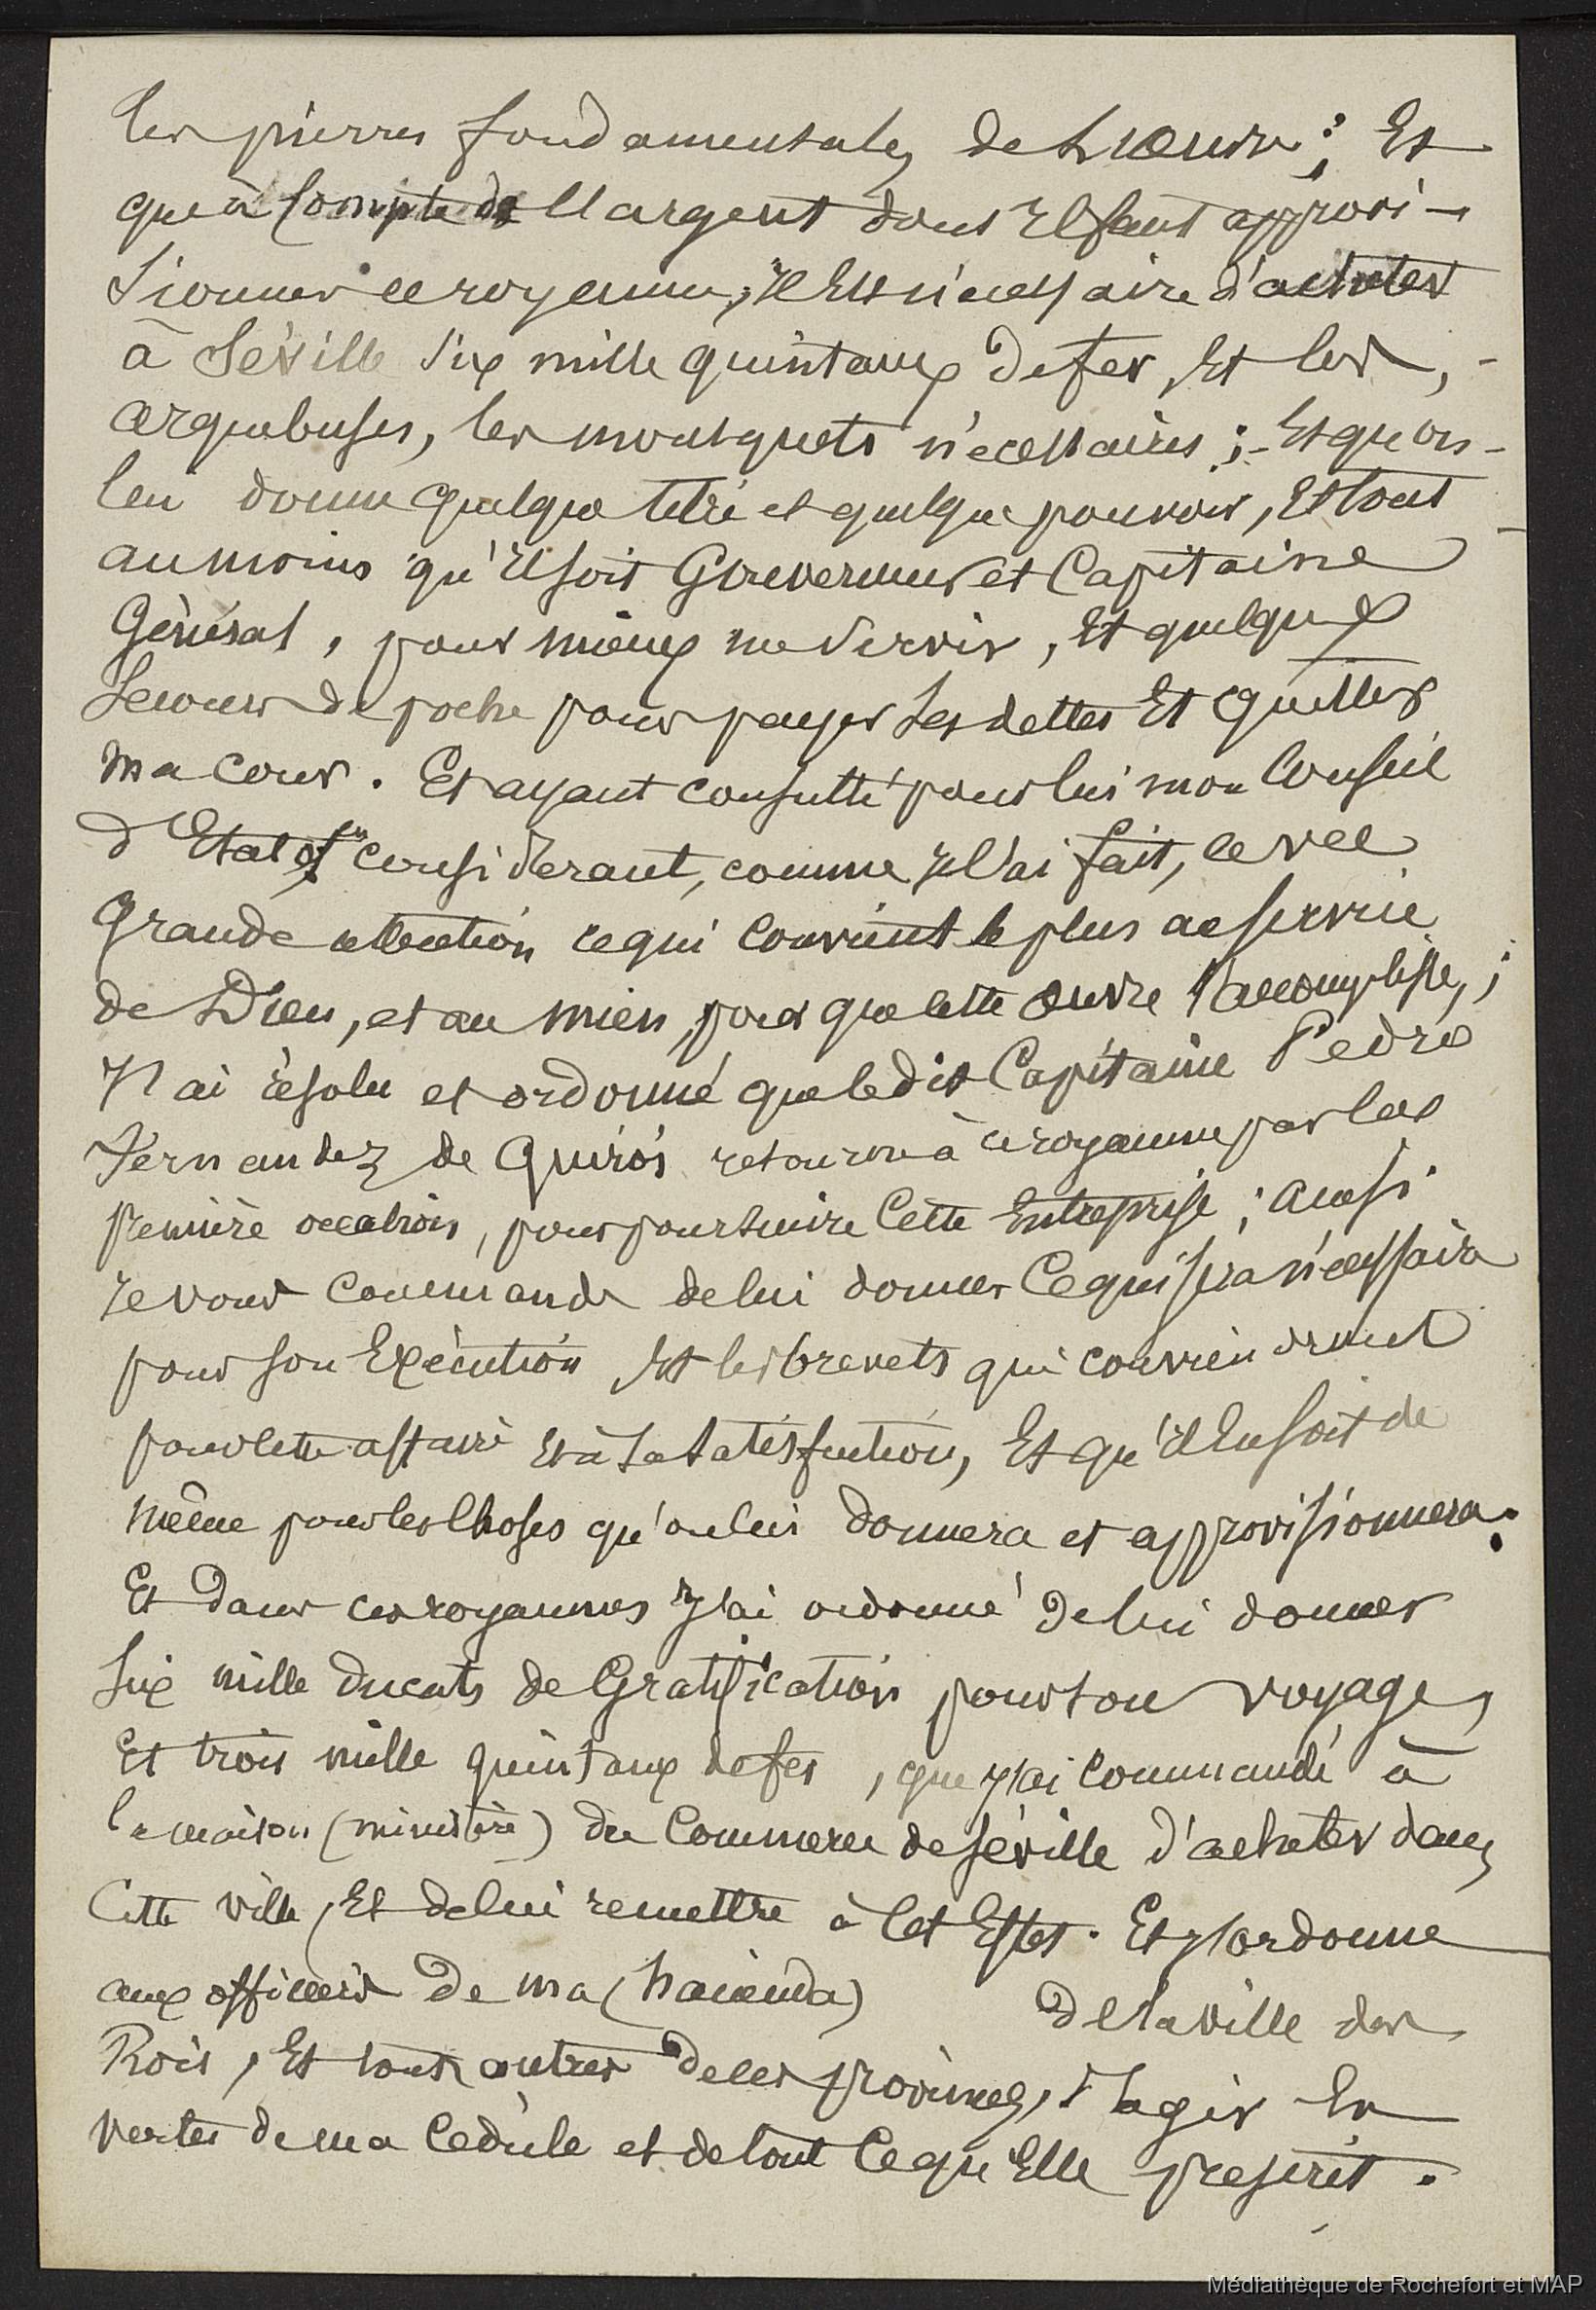 les pierres fondamentales de l'œuvre ; Et
que à compte de l'argent dont Il faut approvi-
sionner ce royaume, Il Est nécessaire d'acheter
à Séville six mille quintaux de fer, Et les,
arquebuses, les mousquets nécessaires ; Et qu'on
lui donne quelque titre et quelque pouvoir, Et tout
au moins qu'Il soit Gouverneur et Capitaine
Général, pour mieux me servir, Et quelque
secours de poche pour payer ses dettes Et quitter
ma cour. Et ayant consulté pour lui mon Conseil
d'Etat et considérant, comme Je l'ai fait, avec
grande attention ce qui convient le plus au service
de Dieu, et au mien, pour que cette œuvre s'accomplisse, ;
J'ai résolu et ordonné que le dit Capitaine Pedro
Fernandez de Quirós retourne à ce royaume par la
première occasion, pour poursuivre Cette Entreprise ; Aussi
Je vous commande de lui donner Ce qui sera nécessaire
pour son Exécution Et les brevets qui conviendront
pour cette affaire Et à sa satisfaction, Et qu'il En soit de
même pour les choses qu'on lui donnera et approvisionnera.
Et dans ces royaumes J'ai ordonné de lui donner
six mille Ducats de Gratification pour son voyage,
Et trois mille quintaux de fer, que J'ai commandé à
la maison (ministère) du Commerce de Séville d'acheter dans
Cette ville, Et de lui remettre à Cet Effet. Et J'ordonne
aux officiers de ma (hacienda) de la ville des
Rois, Et tous autres de ces provinces, d'agir En
vertu de ma Cédule et de tout Ce qu'Elle prescrit.
Médiathèque de Rochefort et MAP